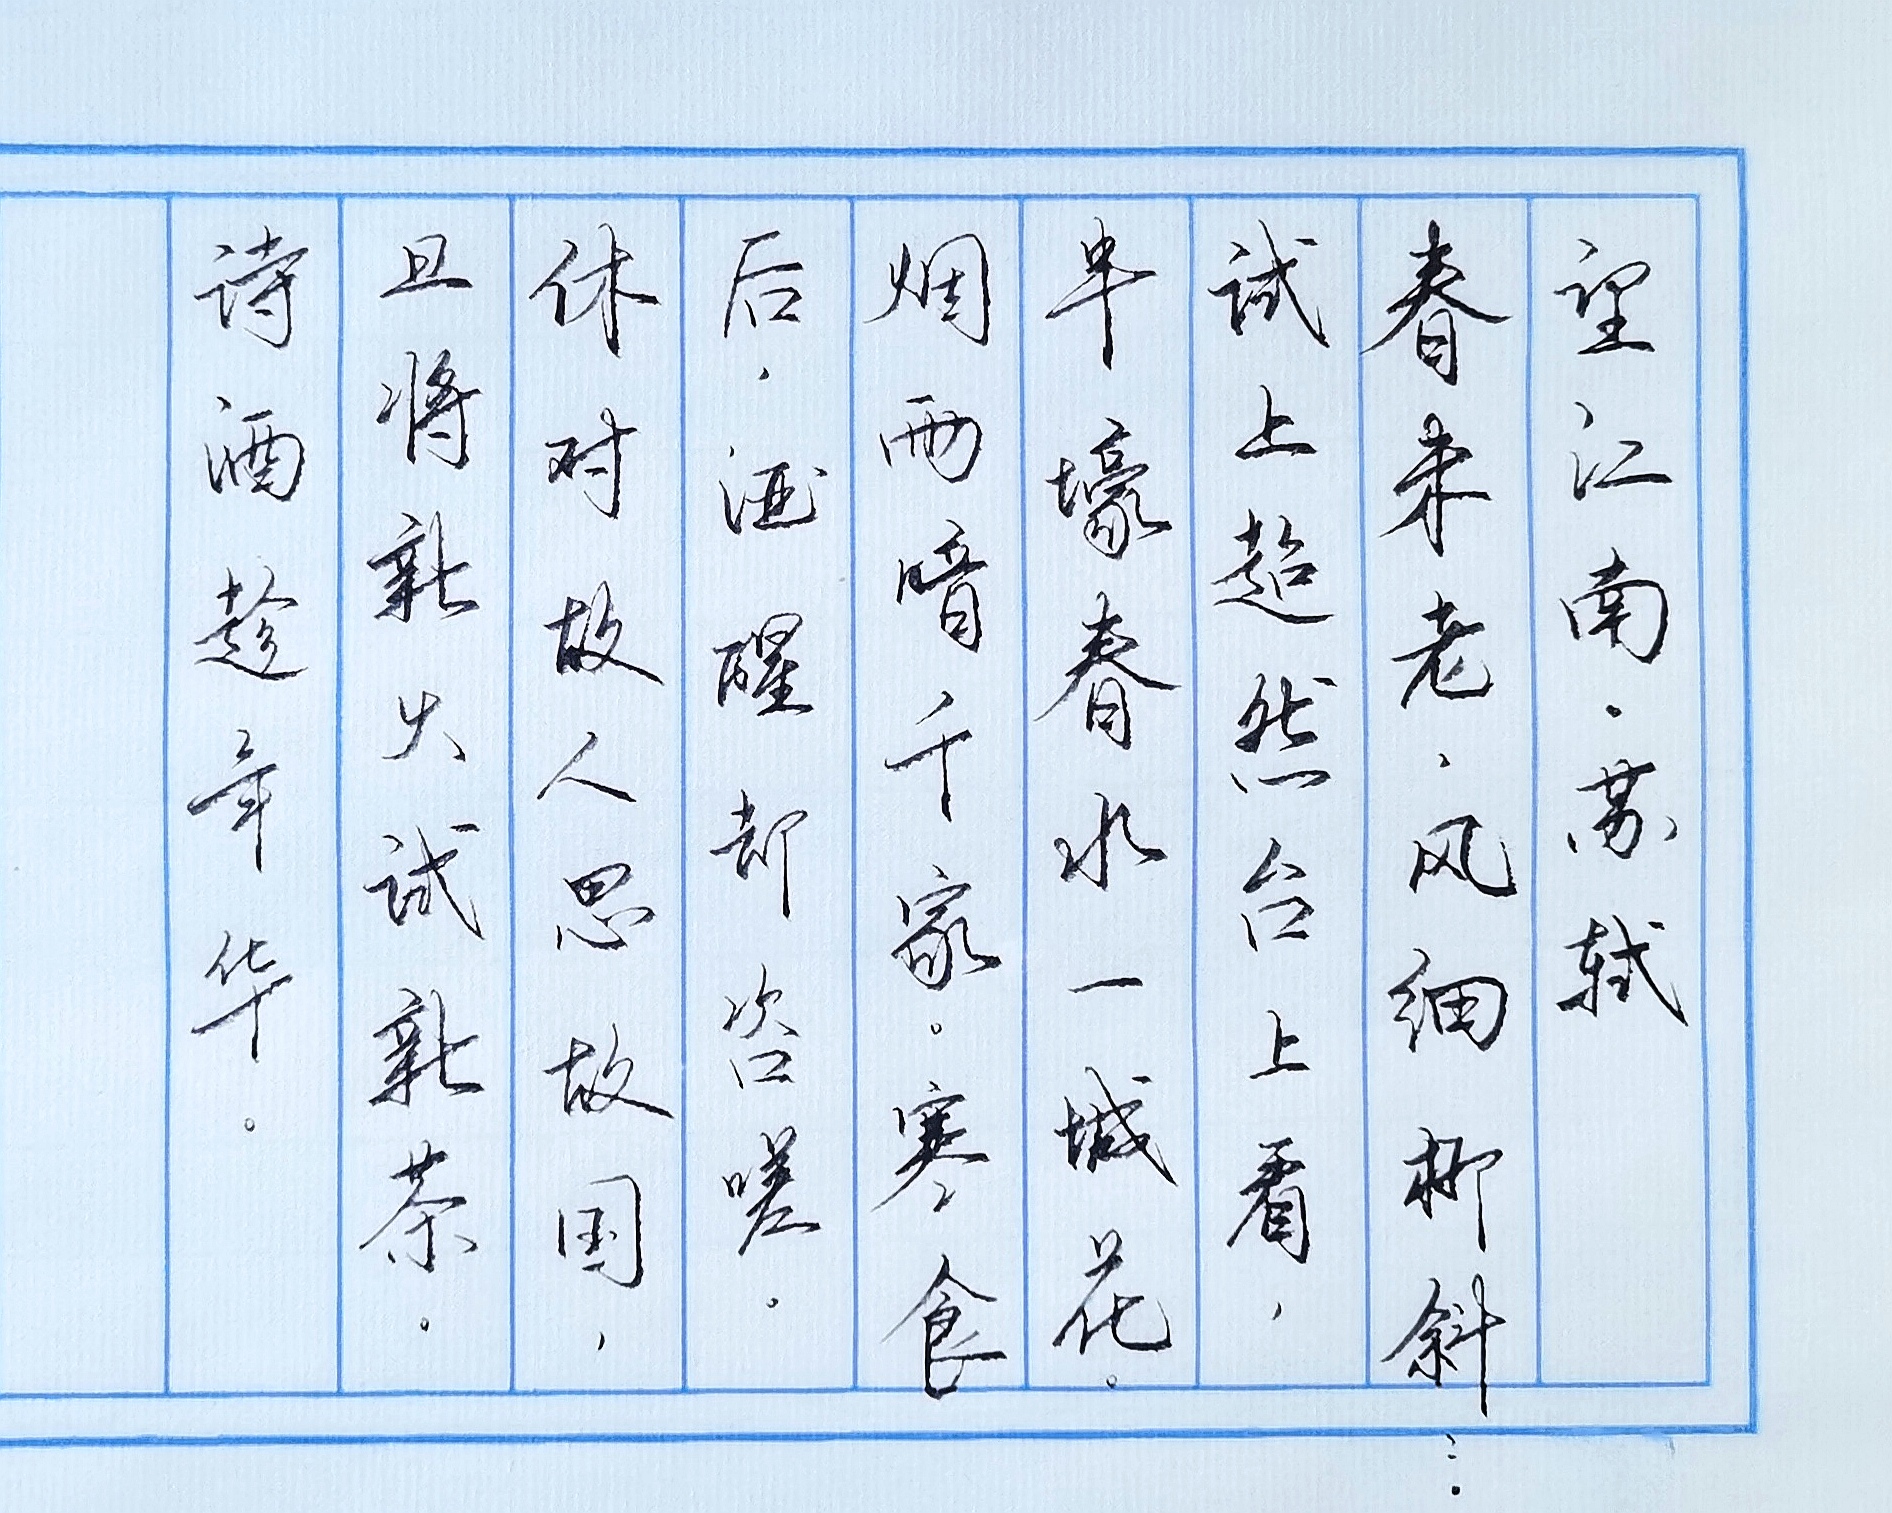 望江南·苏轼
春未老，风细柳斜…
试上超然台上看，
半壕春水一城花。
烟雨暗千家。寒食
后，酒醒却咨嗟。
休对故人思故国，
且将新火试新茶。
诗酒趁年华。